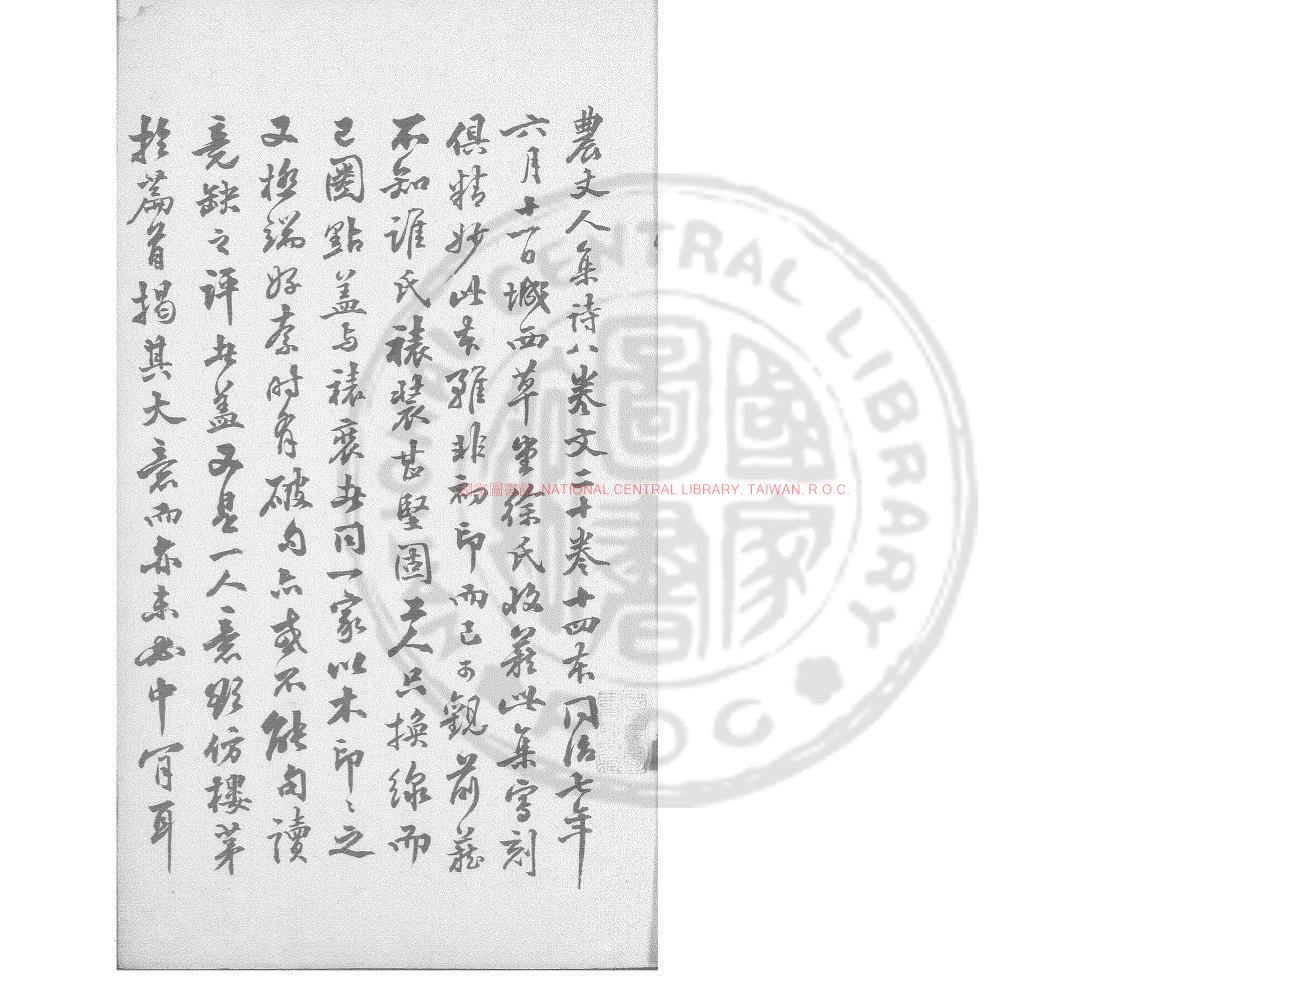 農丈人集詩八卷文二十卷廿四本同治七年
六月十一日城西草堂徐氏收藏此集寫刻
俱精妙此本雖非初印而已可觀前藏
不知誰氏裱裝甚堅固工人只換線而
已圈點蓋与裱褙出同一家以木印〻之
又極端好奈时有破句亦或不能句讀
竟缺之評點蓋又是一人意欲仿樓茅
於篇首揭其大意而亦未必中肯耳
國家圖書館, NATIONAL CENTRAL LIBRARY, TAIWAN, R.O.C.
NATIONAL CENTRAL LIBRARY
R.O.C.